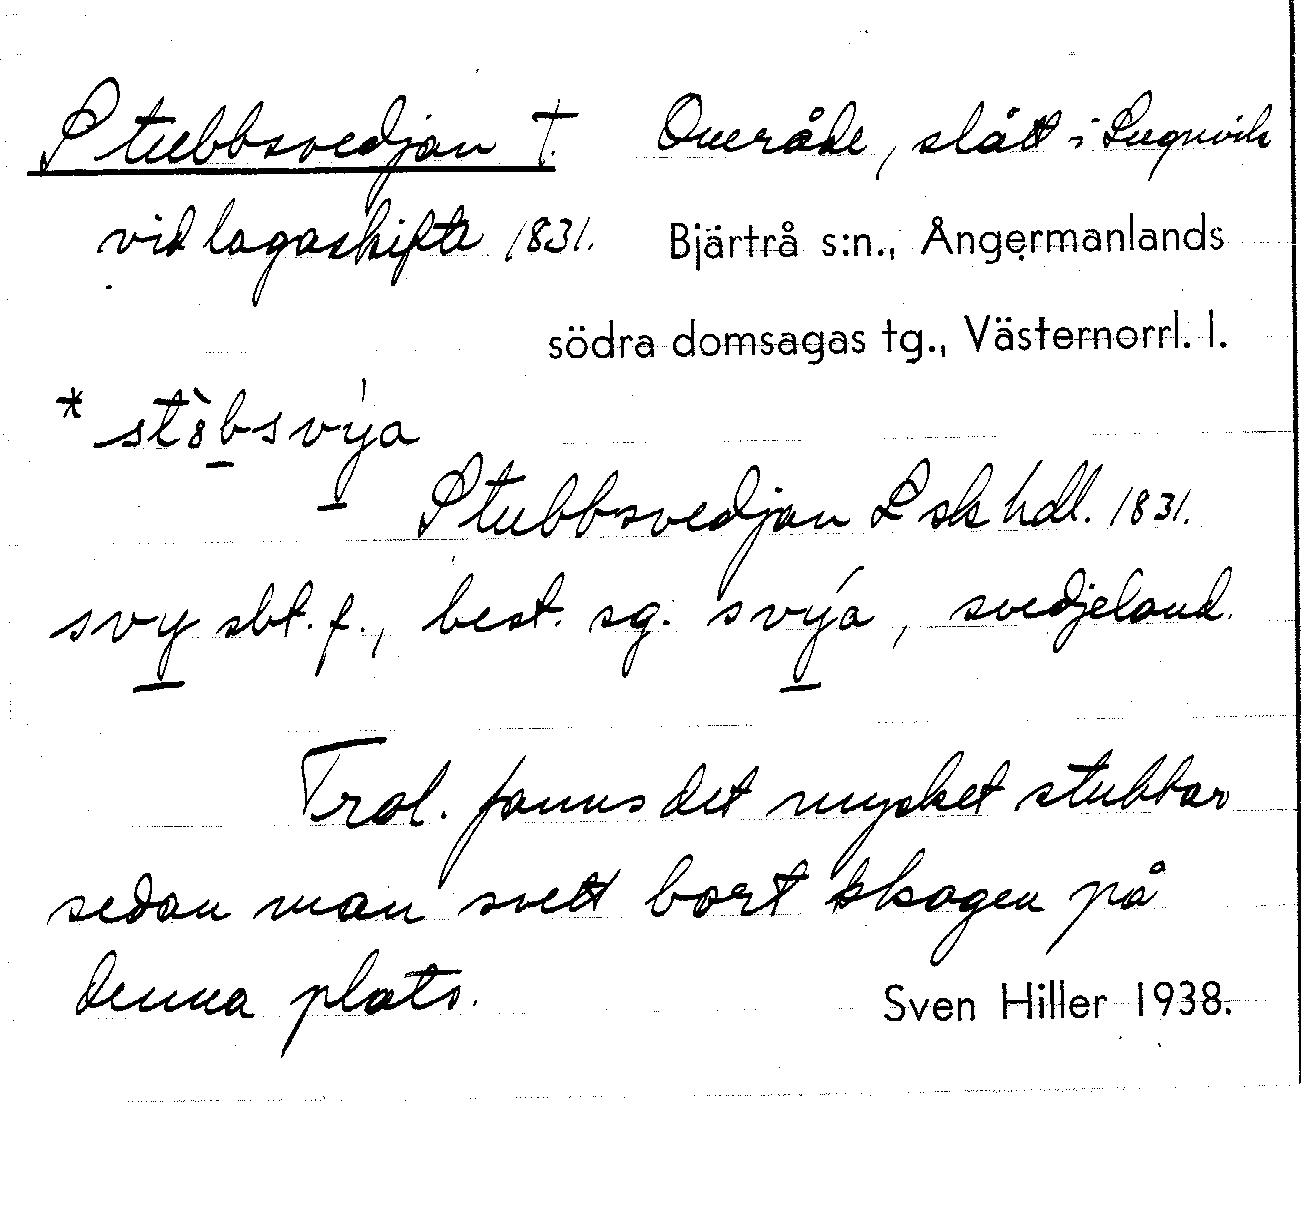 Stubbsvedjan †. Område, slått i Lugnvik
vid lagaskifte 1831. Bjärtrå s:n., Ångermanlands
södra domsagas tg., Västernorrl. l.
* stòbsvýa
Stubbsvedjan L sk hdl. 1831.
svy sbt. f., best. sg. svýa, svedjeland.
Trol. fanns det mycket stubbar
sedan man svett bort skogen på
denna plats. Sven Hiller 1938.